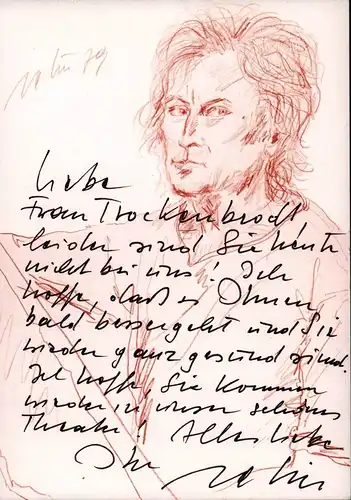 79
Liebe
Frau Trockenbrodt
leider sind Sie heute
nicht bei uns! Ich
hoffe, daß es Ihnen
bald bessergeht und Sie
wieder ganz gesund sind.
Ich hoffe, Sie kommen
wieder in unser schönes
Theater! Alles Liebe
Ihr